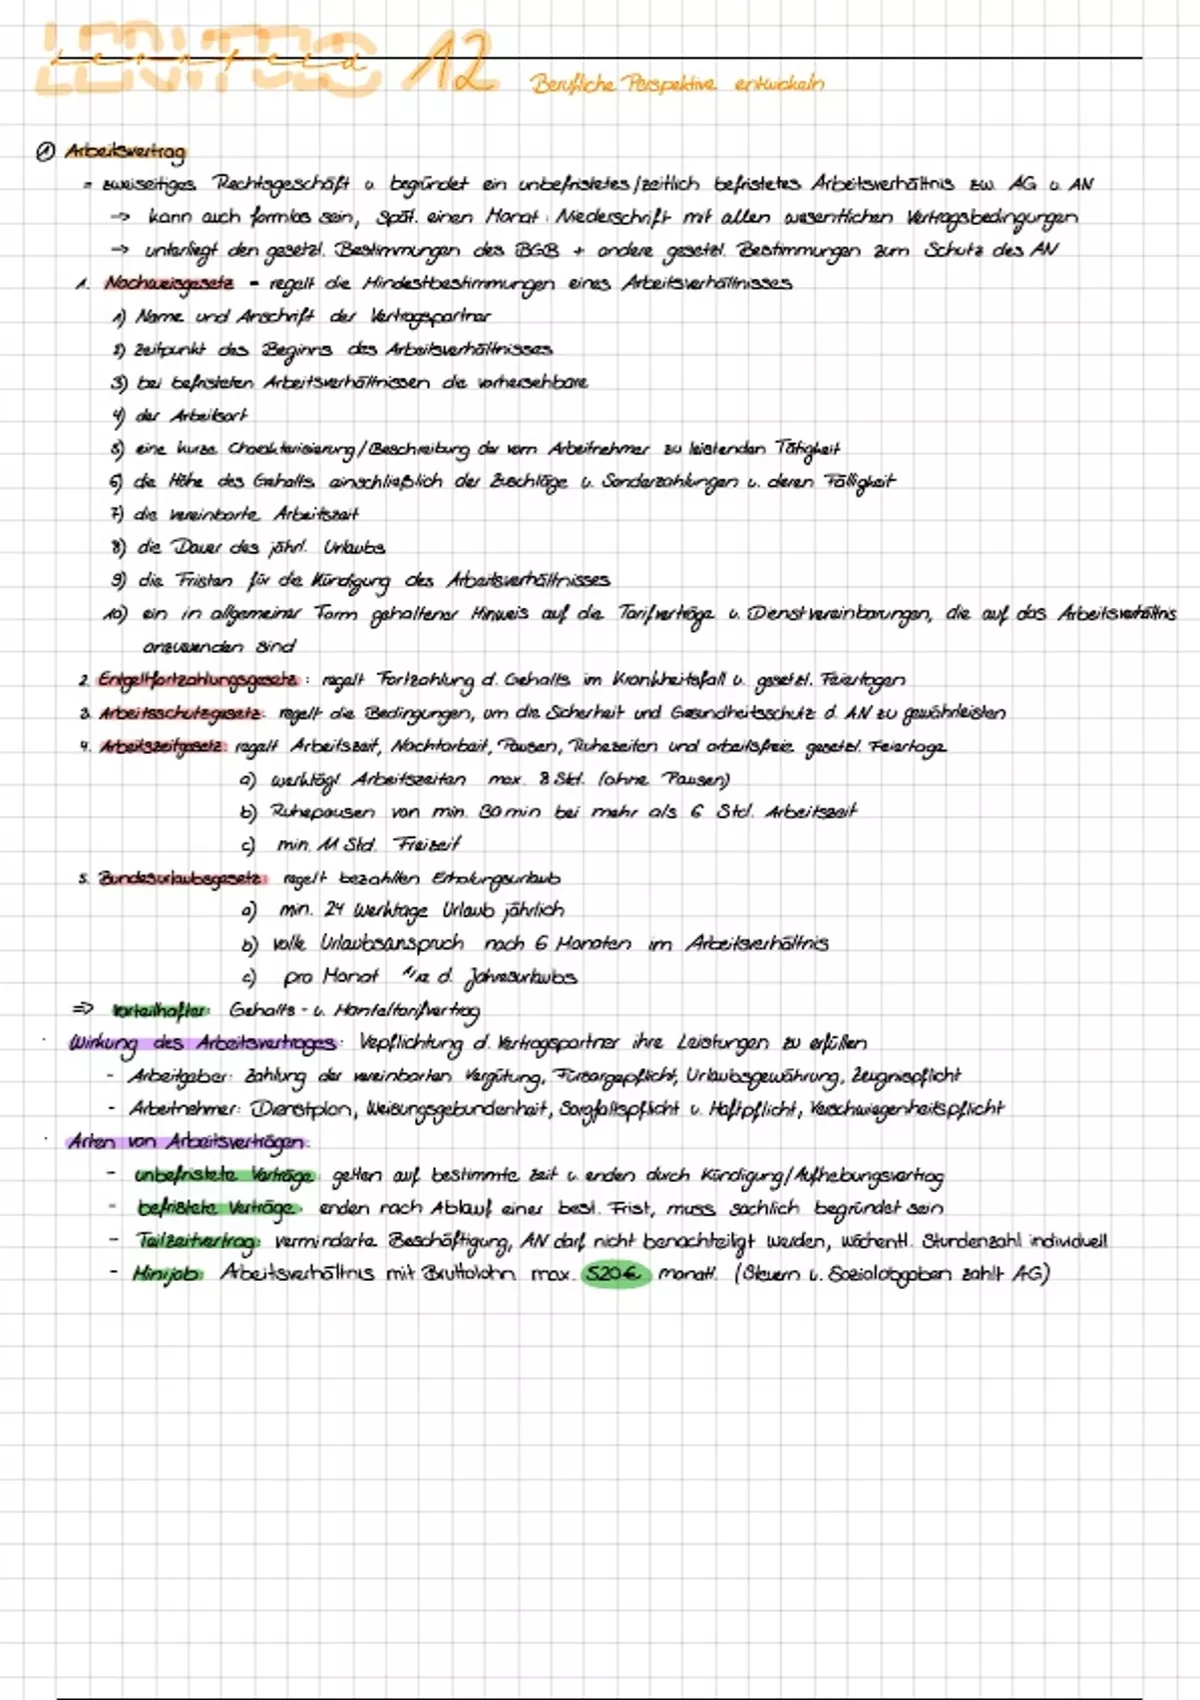 LERNFELD 12 Berufliche Perspektive entwickeln
① Arbeitsvertrag
= zweiseitiges Rechtsgeschäft u. begründet ein unbefristetes/zeitlich befristetes Arbeitsverhältnis zw. AG u. AN
→ kann auch formlos sein, spät. einen Monat: Niederschrift mit allen wesentlichen Vertragsbedingungen
→ unterliegt den gesetzl. Bestimmungen des BGB + andere gesetzl. Bestimmungen zum Schutz des AN
1. Nachweisgesetz - regelt die Mindestbestimmungen eines Arbeitsverhältnisses
1) Name und Anschrift der Vertragspartner
2) Zeitpunkt des Beginns des Arbeitsverhältnisses
3) bei befristeten Arbeitsverhältnissen die vorhersehbare
4) der Arbeitsort
5) eine kurze Charakterisierung/Beschreibung der vom Arbeitnehmer zu leistenden Tätigkeit
6) die Höhe des Gehalts einschließlich der Zuschläge u. Sonderzahlungen u. deren Fälligkeit
7) die vereinbarte Arbeitszeit
8) die Dauer des jährl. Urlaubs
9) die Fristen für die Kündigung des Arbeitsverhältnisses
10) ein in allgemeiner Form gehaltener Hinweis auf die Tarifverträge u. Dienstvereinbarungen, die auf das Arbeitsverhältnis
anzuwenden sind
2. Entgeltfortzahlungsgesetz: regelt Fortzahlung d. Gehalts im Krankheitsfall u. gesetzl. Feiertagen
3. Arbeitsschutzgesetz: regelt die Bedingungen, um die Sicherheit und Gesundheitsschutz d. AN zu gewährleisten
4. Arbeitszeitgesetz: regelt Arbeitszeit, Nachtarbeit, Pausen, Ruhezeiten und arbeitsfreie gesetzl. Feiertage
a) werktägl. Arbeitszeiten max. 8 Std. (ohne Pausen)
b) Ruhepausen von min. 30 min bei mehr als 6 Std. Arbeitszeit
c) min. 11 Std. Freizeit
5. Bundesurlaubsgesetz: regelt bezahlten Erholungsurlaub
a) min. 24 Werktage Urlaub jährlich
b) volle Urlaubsanspruch nach 6 Monaten im Arbeitsverhältnis
c) pro Monat 1/12 d. Jahresurlaubs
⇒ vorteilhafter: Gehalts- u. Manteltarifvertrag
· Wirkung des Arbeitsvertrages: Vepflichtung d. Vertragspartner ihre Leistungen zu erfüllen
- Arbeitgeber: Zahlung der vereinbarten Vergütung, Fürsorgepflicht, Urlaubsgewährung, Zeugnispflicht
- Arbeitnehmer: Dienstplan, Weisungsgebundenheit, Sorgfaltspflicht u. Haftpflicht, Verschwiegenheitspflicht
· Arten von Arbeitsverträgen:
- unbefristete Verträge: gelten auf bestimmte Zeit u. enden durch Kündigung/Aufhebungsvertrag
- befristete Verträge: enden nach Ablauf einer best. Frist, muss sachlich begründet sein
- Teilzeitvertrag: verminderte Beschäftigung, AN darf nicht benachteiligt werden, wöchentl. Stundenzahl individuell
- Minijob: Arbeitsverhältnis mit Bruttolohn max. 520€ monatl. (Steuern u. Sozialabgaben zahlt AG)